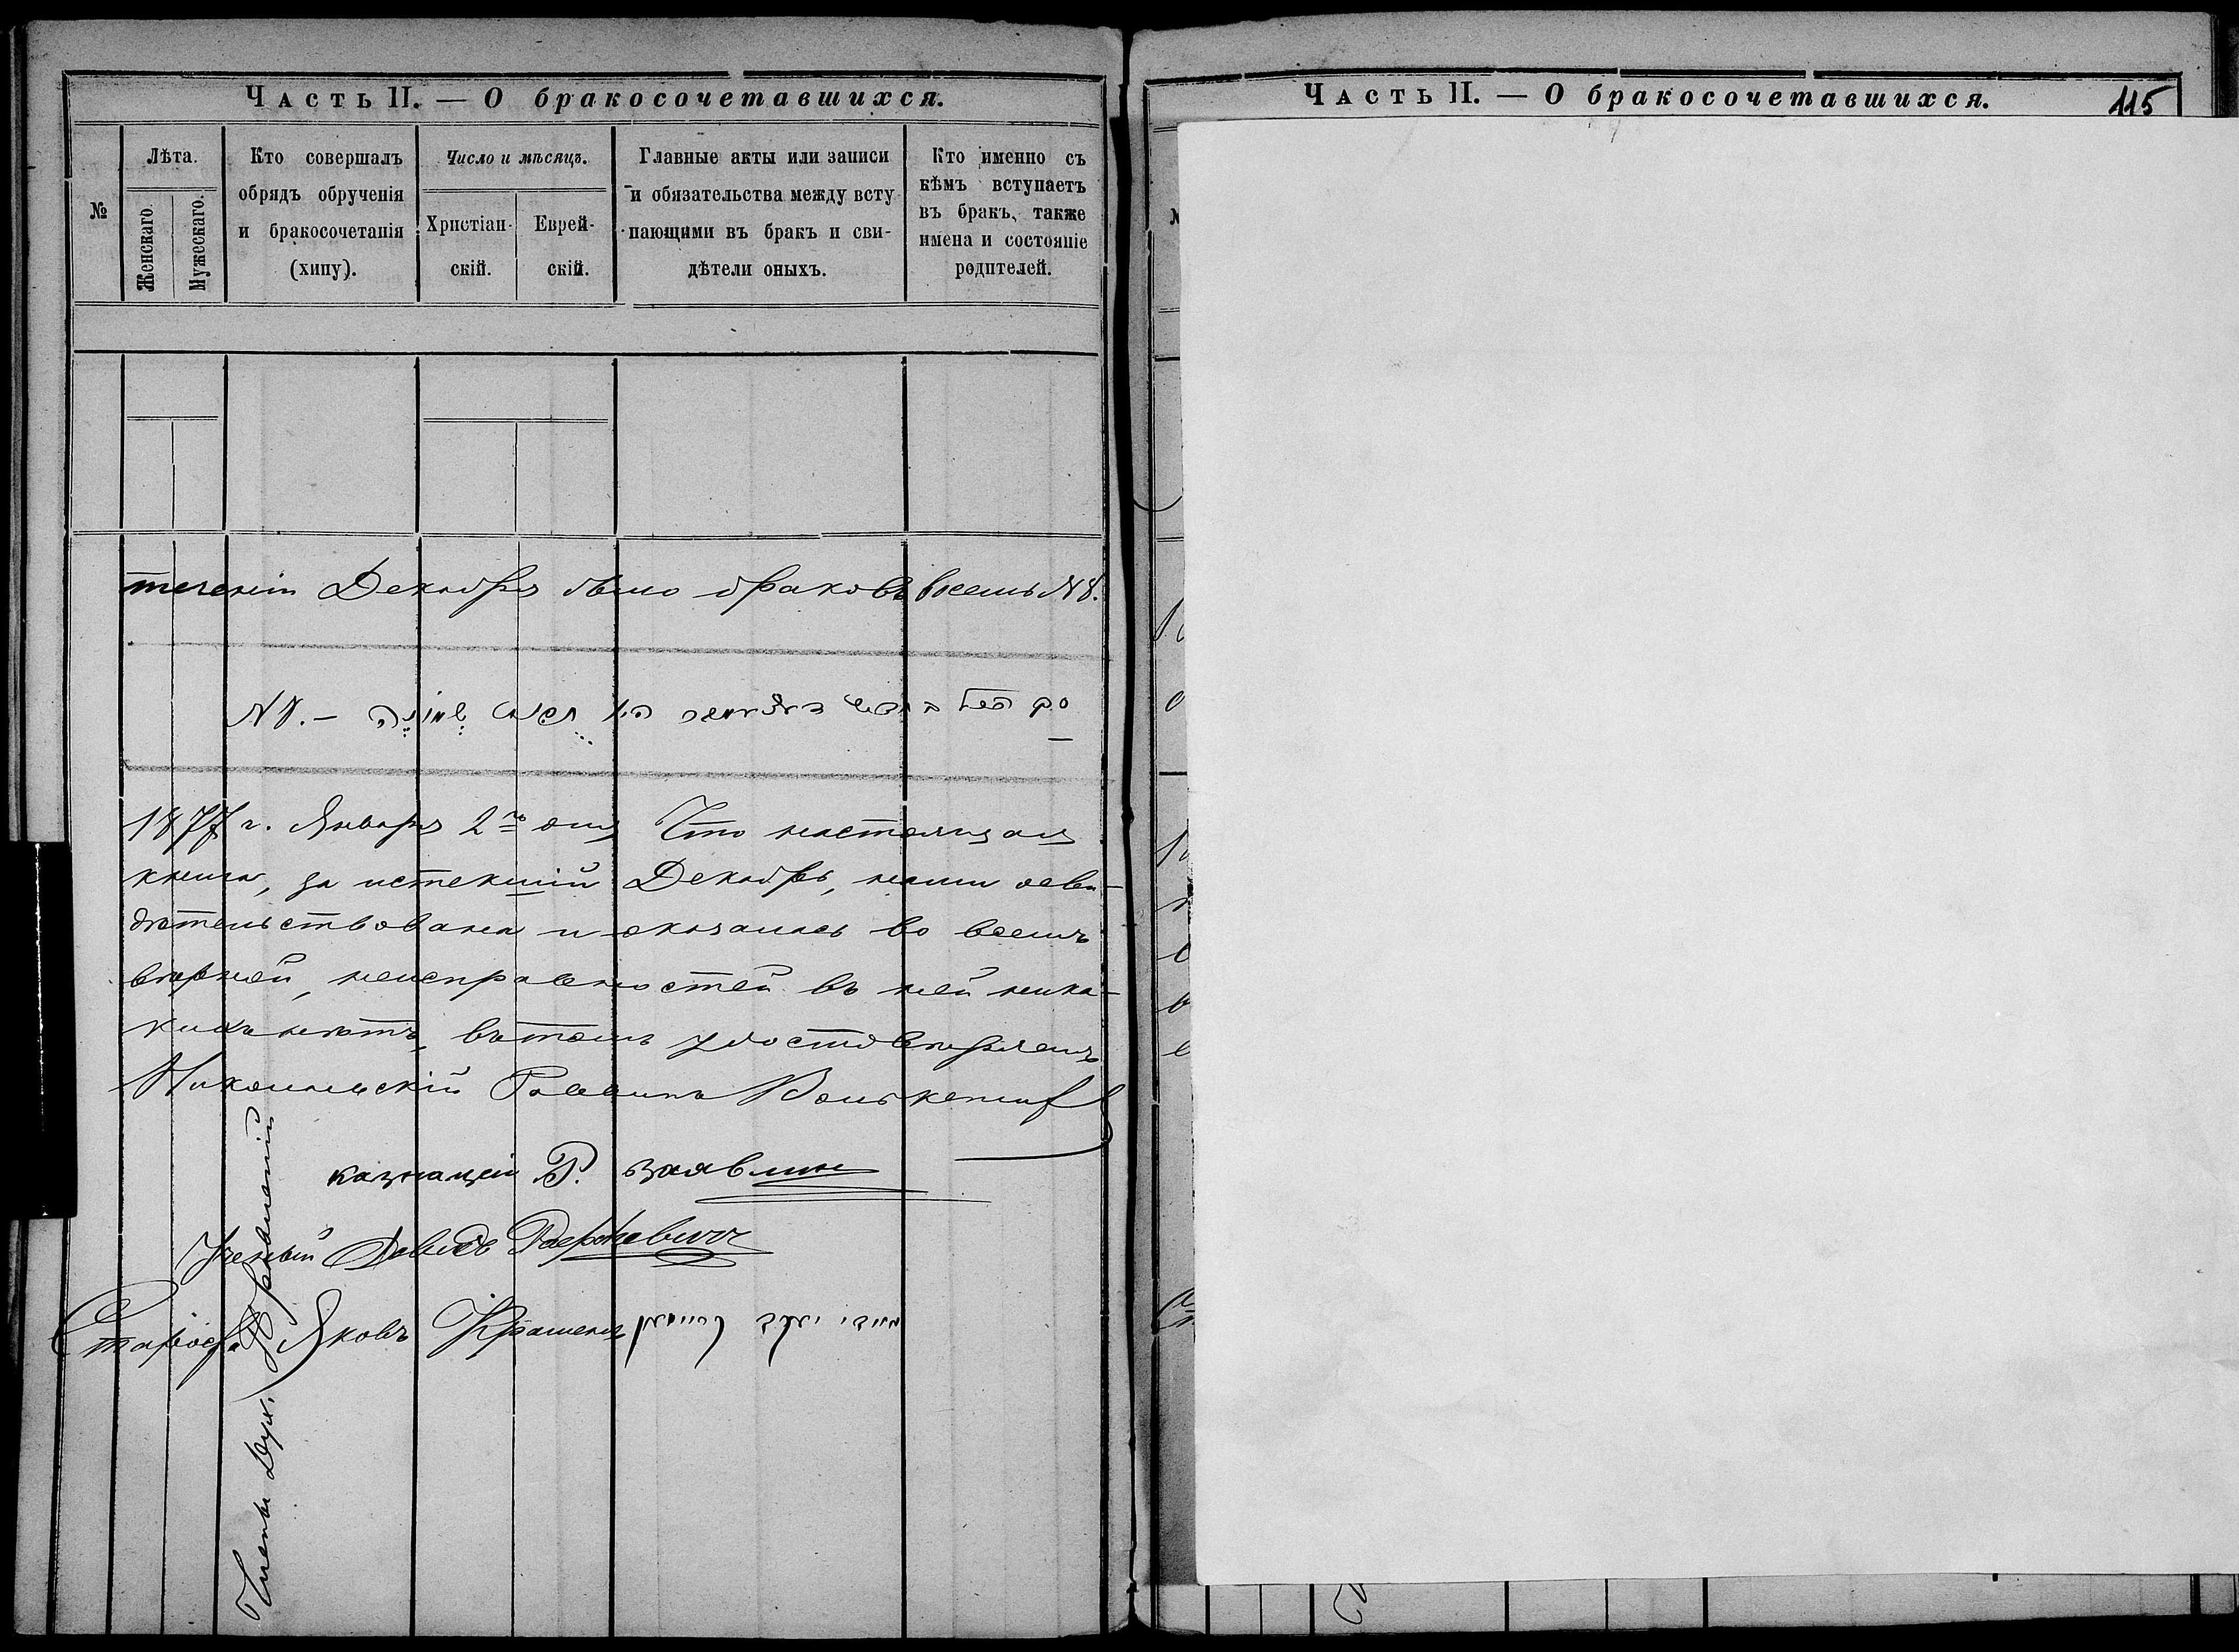 Часть II. — О бракосочетавшихся.
№
Лѣта.
Женскаго.
Мужескаго.
Кто совершалъ
обрядъ обрученія
и бракосочетанія
(хипу).
Число и мѣсяцъ.
Христіан-
скій.
Еврей-
скій.
Главные акты или записи
и обязательства между всту
пающими въ бракъ и сви-
дѣтели оныхъ.
Кто именно съ
кѣмъ вступаетъ
въ бракъ, также
имена и состояніе
родителей.
теченіи Декабря было браковъ восемь N 8.
N 8. —
1877 г. Января 2го дня Что настоящая
книга, за истекшій Декабрь, нами осви-
дѣтельствована и оказалась во всемъ
вѣрной, неисправностей въ ней ника-
кихъ нѣтъ, въ томъ удостовѣряемъ
Никольскій Раввинъ
казначей Р.
Ученый Давидъ
Староста Яковъ
Члены Дух. Правленія
Часть II. — О бракосочетавшихся.
115